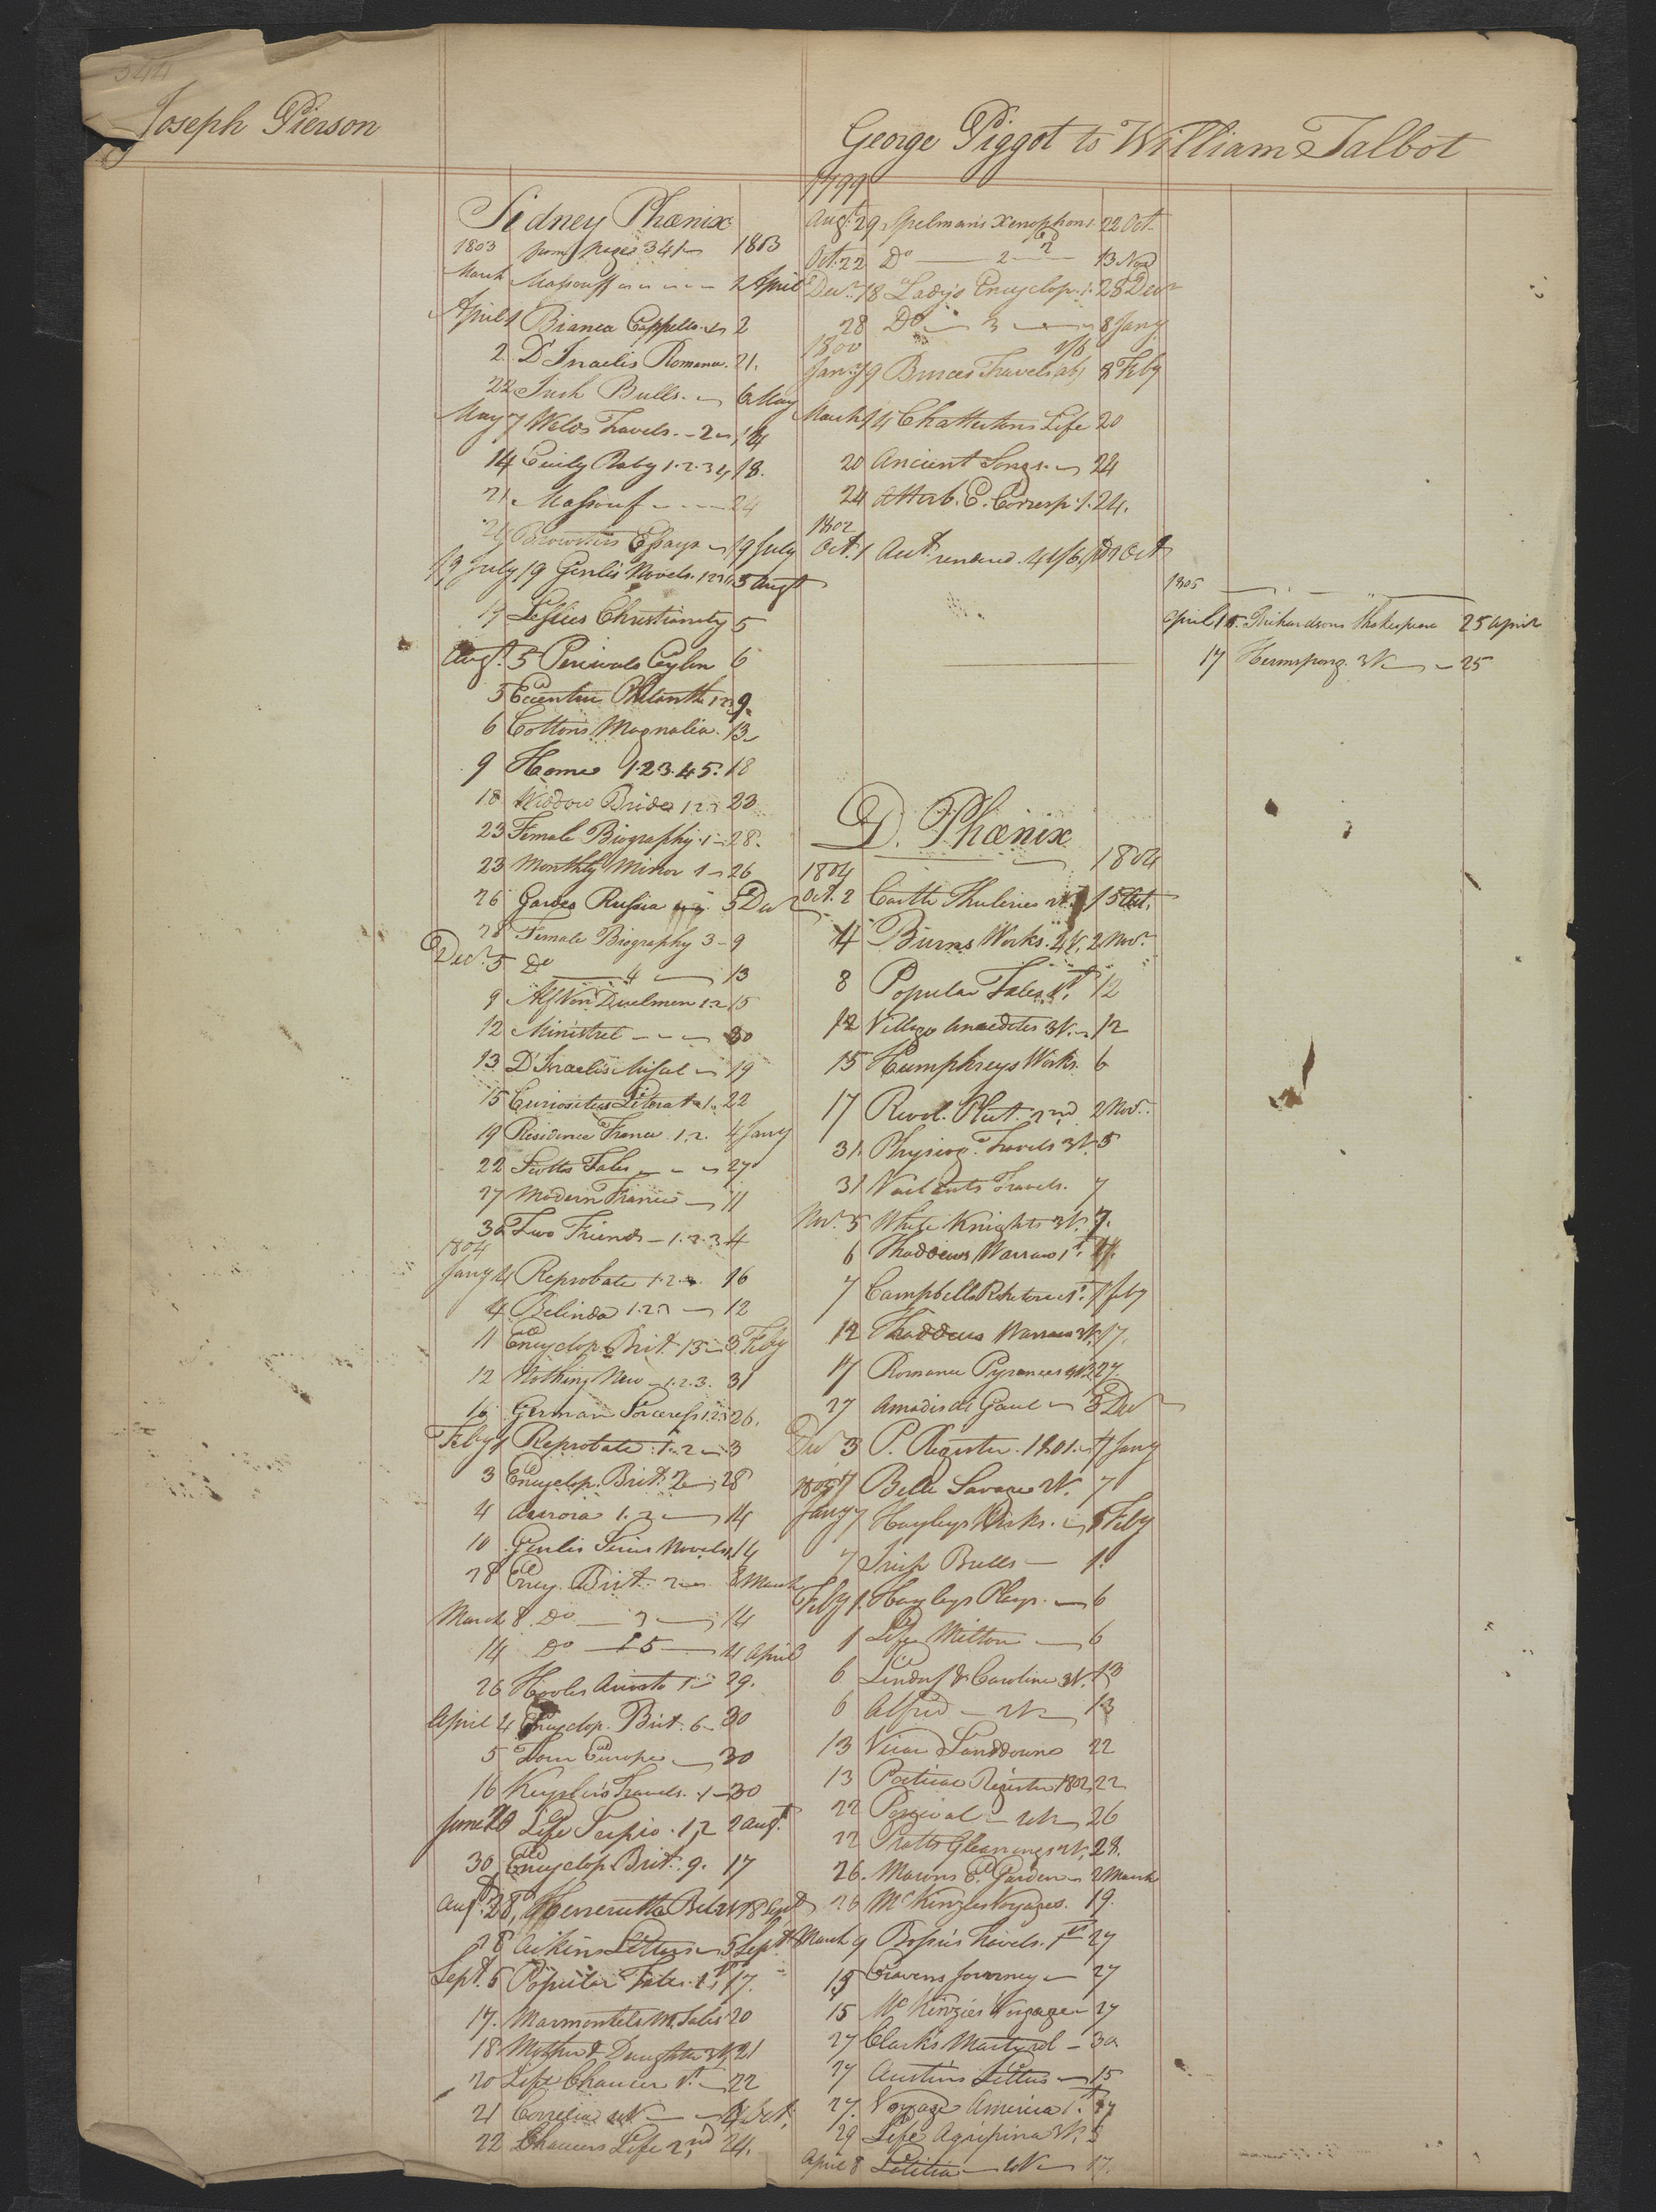 344
Joseph Pierson
Sidney Phœnix
1803 from page 341 1803
March Massouff 2 April
April 1 Bianca Cappello 2
2 D'Israelis Romance. 21.
22 Irish Bulls. 6 May
May 7 Welds Travels. - 2 14
14 Emily Raby 1.2.3.4 18.
21 Massouf 24
24 Essays 19 July
19 July 19 Genlis Novels. 5 Augt
19 Leslies Christianity 5
Augt. 5 Percivals Ceylon 6
5 Eccentric Philanth 1.2.3 9.
6 Cottons Magnalia. 13
9 Home 1.2.3.4.5. 18
18 Widow Bride 1.2.3 23
23 Female Biography. 1 28.
23 Monthly Mirror 1 26
26 Russia 5 Decr
28 Female Biography 3 - 9
Decr. 5 Do 4 13
9 Alf Von Duelmen 1.2 15
12 Minstrel 30
13 D'Israelis Misal 19
15 Curiosities Literat 1. 22
19 Residence France 1.2. 4 Jany
22 Scotts Tales 27
27 Modern France 11
30 Two Friends - 1.2.3 4
1804
Jany 4 Reprobate 1.2. 16
4 Belinda 1.2.3 12
11 Encyclop. Brit. 15 3 Feby
12 Nothing New - 1.2.3. 31
16 German Sorceress 1.2.3 26.
Feby 1 Reprobate. 1.2 3
3 Encyclop. Brit. 2 28
4 Aurora 1.2 14
10 Genlis Novels 14
28 Ency. Brit. 2 8 March
March 8 Do 3 14
14 Do 15 4 April
26 Hooles Ariosto 1 29.
April 4 Encyclop. Brit. 6 30
5 Tour Europe 30
16 Keyslers Travels. 1 30
June 20 Life Scipio. 1,2 2 augt.
30 Encyclop Brit. 9. 17
Augt. 28, 18 Sept
28 Aikins Letters 5 Sept.
Sept. 5 Popular Tales. 1st 17.
17. Marmontels M. Tales 20
18 Mother & Daughter 3V. 21
20 Life Chaucer 1st 22
21 Correlia 4 Oct.
22 Chaucers Life 2nd 24.
George Piggot to William Talbot
1799
Augt. 29 Spelmans Xenophon 1 22 Oct.
Oct. 22 Do 2 13 Nov
Decr. 18 Lady's Encyclop. 1. 28 Decr
28 Do 3 8 Jany
1800
Jany 9 Bruces Travels abd 8 Feby
March 14 Chattertons Life 20
20 Ancient Songs. 24
24 Atterb. E. Corresp. 1. 24.
1802
Oct. 1 Act. rendered. Oct
D. Phœnix
1804
1804
Oct. 2 Castle Thuleries 2V. 15 Oct.
4 Burns Works. 4V. 2 Novr.
8 Popular Tales 1st. 12
12 Village Anecdotes 3V. 12
15 Humphreys Works. 6
17 Revol. Plut. 2nd 2 Nov.
31 Physiog. Travels 3V. 5
31 Vailants Travels. 7
Nov. 5 White Knights 3V. 7.
6 Thaddeus Warsaw 1st.
7 Campbells Rhetoric 1st. 7 feby
12 Thaddeus Warsaw 3V. 17.
17 Romance Pyranees 4V. 27.
27 Amadis de Gaul 3 Decr
Decr 3 P. Register. 1801. 7 Jany
1805 Belle Savage 2V. 7
Jany 7 Hayleys Works. 1 Feby
7 Irish Bulls 1.
Feby 1. Hayleys Plays. 6
1 Life Milton 6
6 Lindorf & Caroline 3V. 13
6 Alfred - 2V 13
13 Vicar Landsdowne 22
13 Poetical Register 1802 22
22 Percival - 4V 26
22 Pratts Gleanings 2V. 28.
26. Mawes Ed. Garden 2 March
26 McKinzies Voyages. 19.
March 9 Bossu's Travels. 1st 27
15 Cravens Journey 27
15 McKinzies Voyage 27
27 Clarks Martyrol - 30
27 Austins Letters 15
27. Voyage America 1st.
29 Life Agripina 3V. 5
April 8 Letitia 2V 17.
1805
April 15. Richardsons Shakespeare 25 April
17 Hermsprong. 3V 25